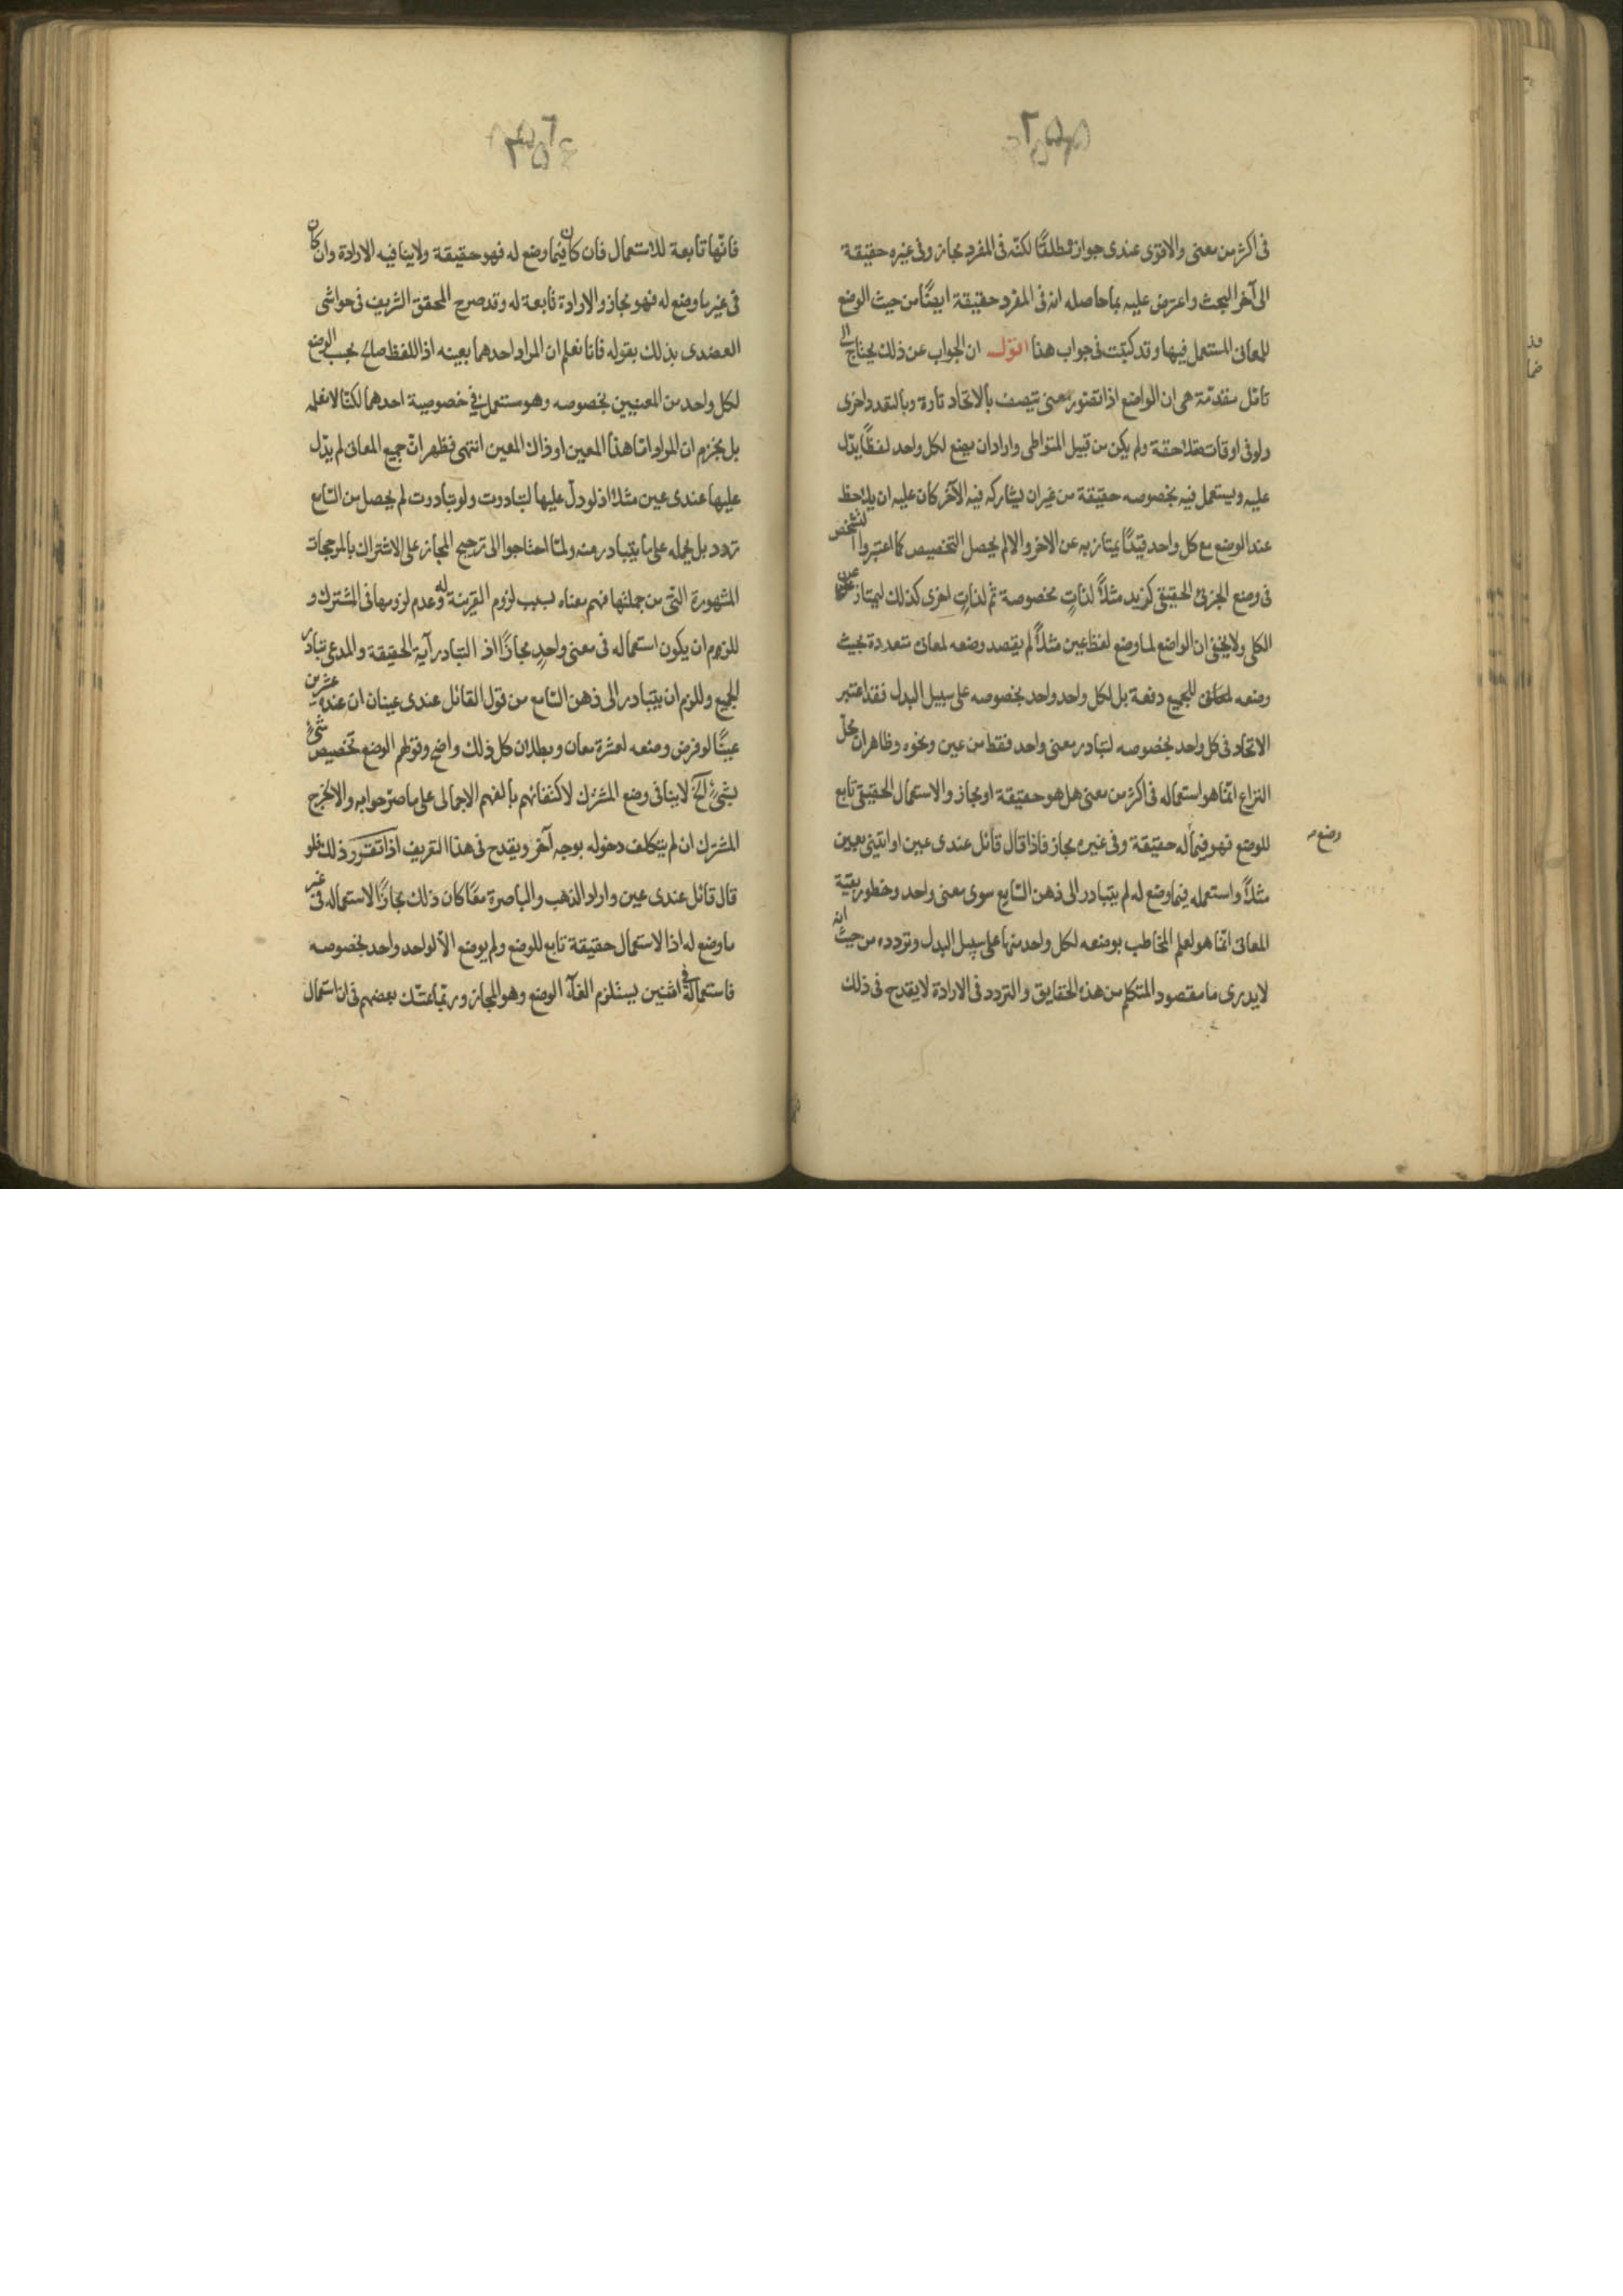 في اكثر من معنى والاقوى عندى جوازه مطلقًا لكنّه في المفرد مجاز وفي غيره حقيقة
الى آخر البحث واعترض عليه بما حاصله انه في المفرد حقيقة ايضًا من حيث الوضع
للمعاني المستعمل فيها وقد كتبت في جواب هذا اقول ان الجواب عن ذلك يحتاج الى
تأمل مقدّمة هى ان الواضع اذا تصور معنى يتصف بالاتحاد تارة وبالتعدد اخرى
ولو في اوقات متلاحقة ولم يكن من قبيل المتواطى واراد ان يضع لكل واحد لفظًا يدّل
عليه ويستعمل فيه بخصوصه حقيقة من غير ان يشاركه فيه الآخر كان عليه ان يلاحظ
عند الوضع مع كل واحد قيدًا يمتاز به عن الاخر والا لم يحصل التخصيص كما اعتبروا التشخص
في وضع الجزئى الحقيقى كزيد مثلاً لذاتٍ مخصوصة ثم لذاتٍ اخرى كذلك ليمتاز عن
الكلى ولا يخفى ان الواضع لما وضع لفظ عين مثلاً لم يقصد وضعه لمعان متعددة بحيث
وضعه للجميع دفعة بل لكل واحد واحد بخصوصه على سبيل البدل فقد اعتبر
الاتحاد في كل واحد بخصوصه لتبادر معنى واحد فقط من عين ونحوه وظاهر ان محلّ
النزاع انمّا هو استعماله في اكثر من معنى هل هو حقيقة او مجاز والاستعمال الحقيقى تابع
للوضع فهو فيما له حقيقة وفي غيره مجاز فاذا قال قائل عندى عين او ايتنى بعين
وضع
مثلاً واستعمله فيما وضع له لم يتبادر الى ذهن السّامع سوى معنى واحد وخطور بقيّة
المعاني انمّا هو لعلم المخاطب بوضعه لكل واحد منها على سبيل البدل وتردده من حيث انه
لا يدرى ما مقصود المتكلم من هذه الحقايق والتردد في الارادة لا يقدح في ذلك
٢٥٤
فانّها تابعة للاستعمال فان كان فيما وضع له فهو حقيقة ولا ينافيه الارادة وان كان
في غير ما وضع له فهو مجاز والارادة تابعة له وقد صرح المحقق الشريف في حواشى
العضدى بذلك بقوله فانا نعلم ان المراد احدهما بعينه اذ اللفظ صالح بحسب الوضع
لكل واحد من المعنيين بخصوصه وهو مستعمل في خصوصية احدهما لكنّا لا نعلمه
بل نجزم ان المراد امّا هذا المعين او ذاك المعين انتهى فظهر انّ جميع المعانى لم يدّل
عليها عندى عين مثلا اذ لو دلّ عليها لتبادرت ولو تبادرت لم يحصل من السّامع
تردد بل يحمله على ما يتبادر منه ولمّا احتاجوا الى ترجيح المجاز على الاشتراك بالمرجحات
المشهورة التى من جملتها فهم معناه بسبب لزوم القرينة له وعدم لزومها في المشترك و
للزم ان يكون استعماله في معنى واحدٍ مجازًا اذ التبادر آية الحقيقة والمدعى تبادر
الجميع وللزم ان يتبادر الى ذهن السّامع من قول القائل عندى عينان ان عنده عشرين
عينًا لو فرض وضعه لعشرة معان وبطلان كل ذلك واضح وقولهم الوضع تخصيص شئ
بشئ الخ لا ينافى وضع المشترك لاكتفائهم بالفهم الاجمالى على ما صرّحوا به والا لخرج
المشترك ان لم يتكلف دخوله بوجه آخر ويقدح في هذا التعريف اذا تقرر ذلك فلو
قال قائل عندى عين واراد الذهب والباصرة معًا كان ذلك مجازًا لاستعماله في غير
ما وضع له اذ الاستعمال حقيقة تابع للوضع ولم يوضع الا لواحد واحد بخصوصه
فاستعماله في اثنين يستلزم الغآء الوضع وهو المجاز وربّما تمسّك بعضهم في ان استعمال